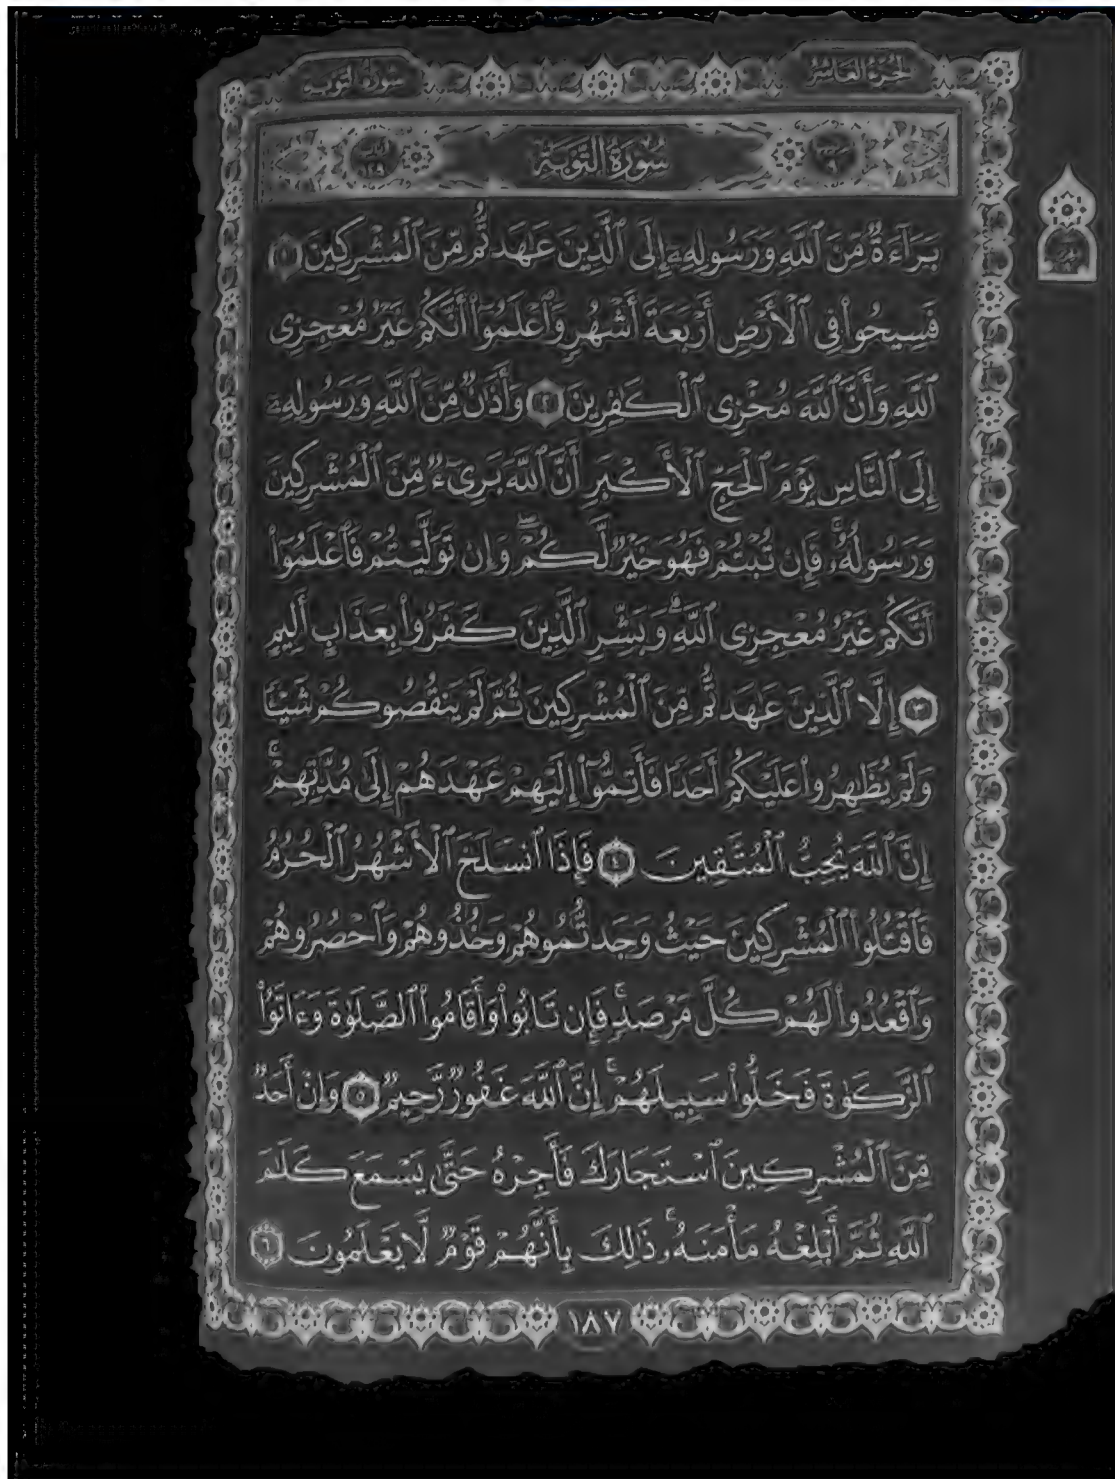 الجزء العاشر
سورة التوبة
ترتيبها ٩
سورة التوبة
آياتها ١٢٩
بَرَآءَةٌ مِّنَ ٱللَّهِ وَرَسُولِهِۦٓ إِلَى ٱلَّذِينَ عَٰهَدتُّم مِّنَ ٱلْمُشْرِكِينَ ١
فَسِيحُوا۟ فِى ٱلْأَرْضِ أَرْبَعَةَ أَشْهُرٍ وَٱعْلَمُوٓا۟ أَنَّكُمْ غَيْرُ مُعْجِزِى
ٱللَّهِ وَأَنَّ ٱللَّهَ مُخْزِى ٱلْكَٰفِرِينَ ٢ وَأَذَٰنٌ مِّنَ ٱللَّهِ وَرَسُولِهِۦٓ
إِلَى ٱلنَّاسِ يَوْمَ ٱلْحَجِّ ٱلْأَكْبَرِ أَنَّ ٱللَّهَ بَرِىٓءٌ مِّنَ ٱلْمُشْرِكِينَ
وَرَسُولُهُۥ ۚ فَإِن تُبْتُمْ فَهُوَ خَيْرٌ لَّكُمْ ۖ وَإِن تَوَلَّيْتُمْ فَٱعْلَمُوٓا۟
أَنَّكُمْ غَيْرُ مُعْجِزِى ٱللَّهِ ۗ وَبَشِّرِ ٱلَّذِينَ كَفَرُوا۟ بِعَذَابٍ أَلِيمٍ
٣ إِلَّا ٱلَّذِينَ عَٰهَدتُّم مِّنَ ٱلْمُشْرِكِينَ ثُمَّ لَمْ يَنقُصُوكُمْ شَيْـًٔا
وَلَمْ يُظَٰهِرُوا۟ عَلَيْكُمْ أَحَدًا فَأَتِمُّوٓا۟ إِلَيْهِمْ عَهْدَهُمْ إِلَىٰ مُدَّتِهِمْ ۚ
إِنَّ ٱللَّهَ يُحِبُّ ٱلْمُتَّقِينَ ٤ فَإِذَا ٱنسَلَخَ ٱلْأَشْهُرُ ٱلْحُرُمُ
فَٱقْتُلُوا۟ ٱلْمُشْرِكِينَ حَيْثُ وَجَدتُّمُوهُمْ وَخُذُوهُمْ وَٱحْصُرُوهُمْ
وَٱقْعُدُوا۟ لَهُمْ كُلَّ مَرْصَدٍ ۚ فَإِن تَابُوا۟ وَأَقَامُوا۟ ٱلصَّلَوٰةَ وَءَاتَوُا۟
ٱلزَّكَوٰةَ فَخَلُّوا۟ سَبِيلَهُمْ ۚ إِنَّ ٱللَّهَ غَفُورٌ رَّحِيمٌ ٥ وَإِنْ أَحَدٌ
مِّنَ ٱلْمُشْرِكِينَ ٱسْتَجَارَكَ فَأَجِرْهُ حَتَّىٰ يَسْمَعَ كَلَٰمَ
ٱللَّهِ ثُمَّ أَبْلِغْهُ مَأْمَنَهُۥ ۚ ذَٰلِكَ بِأَنَّهُمْ قَوْمٌ لَّا يَعْلَمُونَ ٦
١٨٧